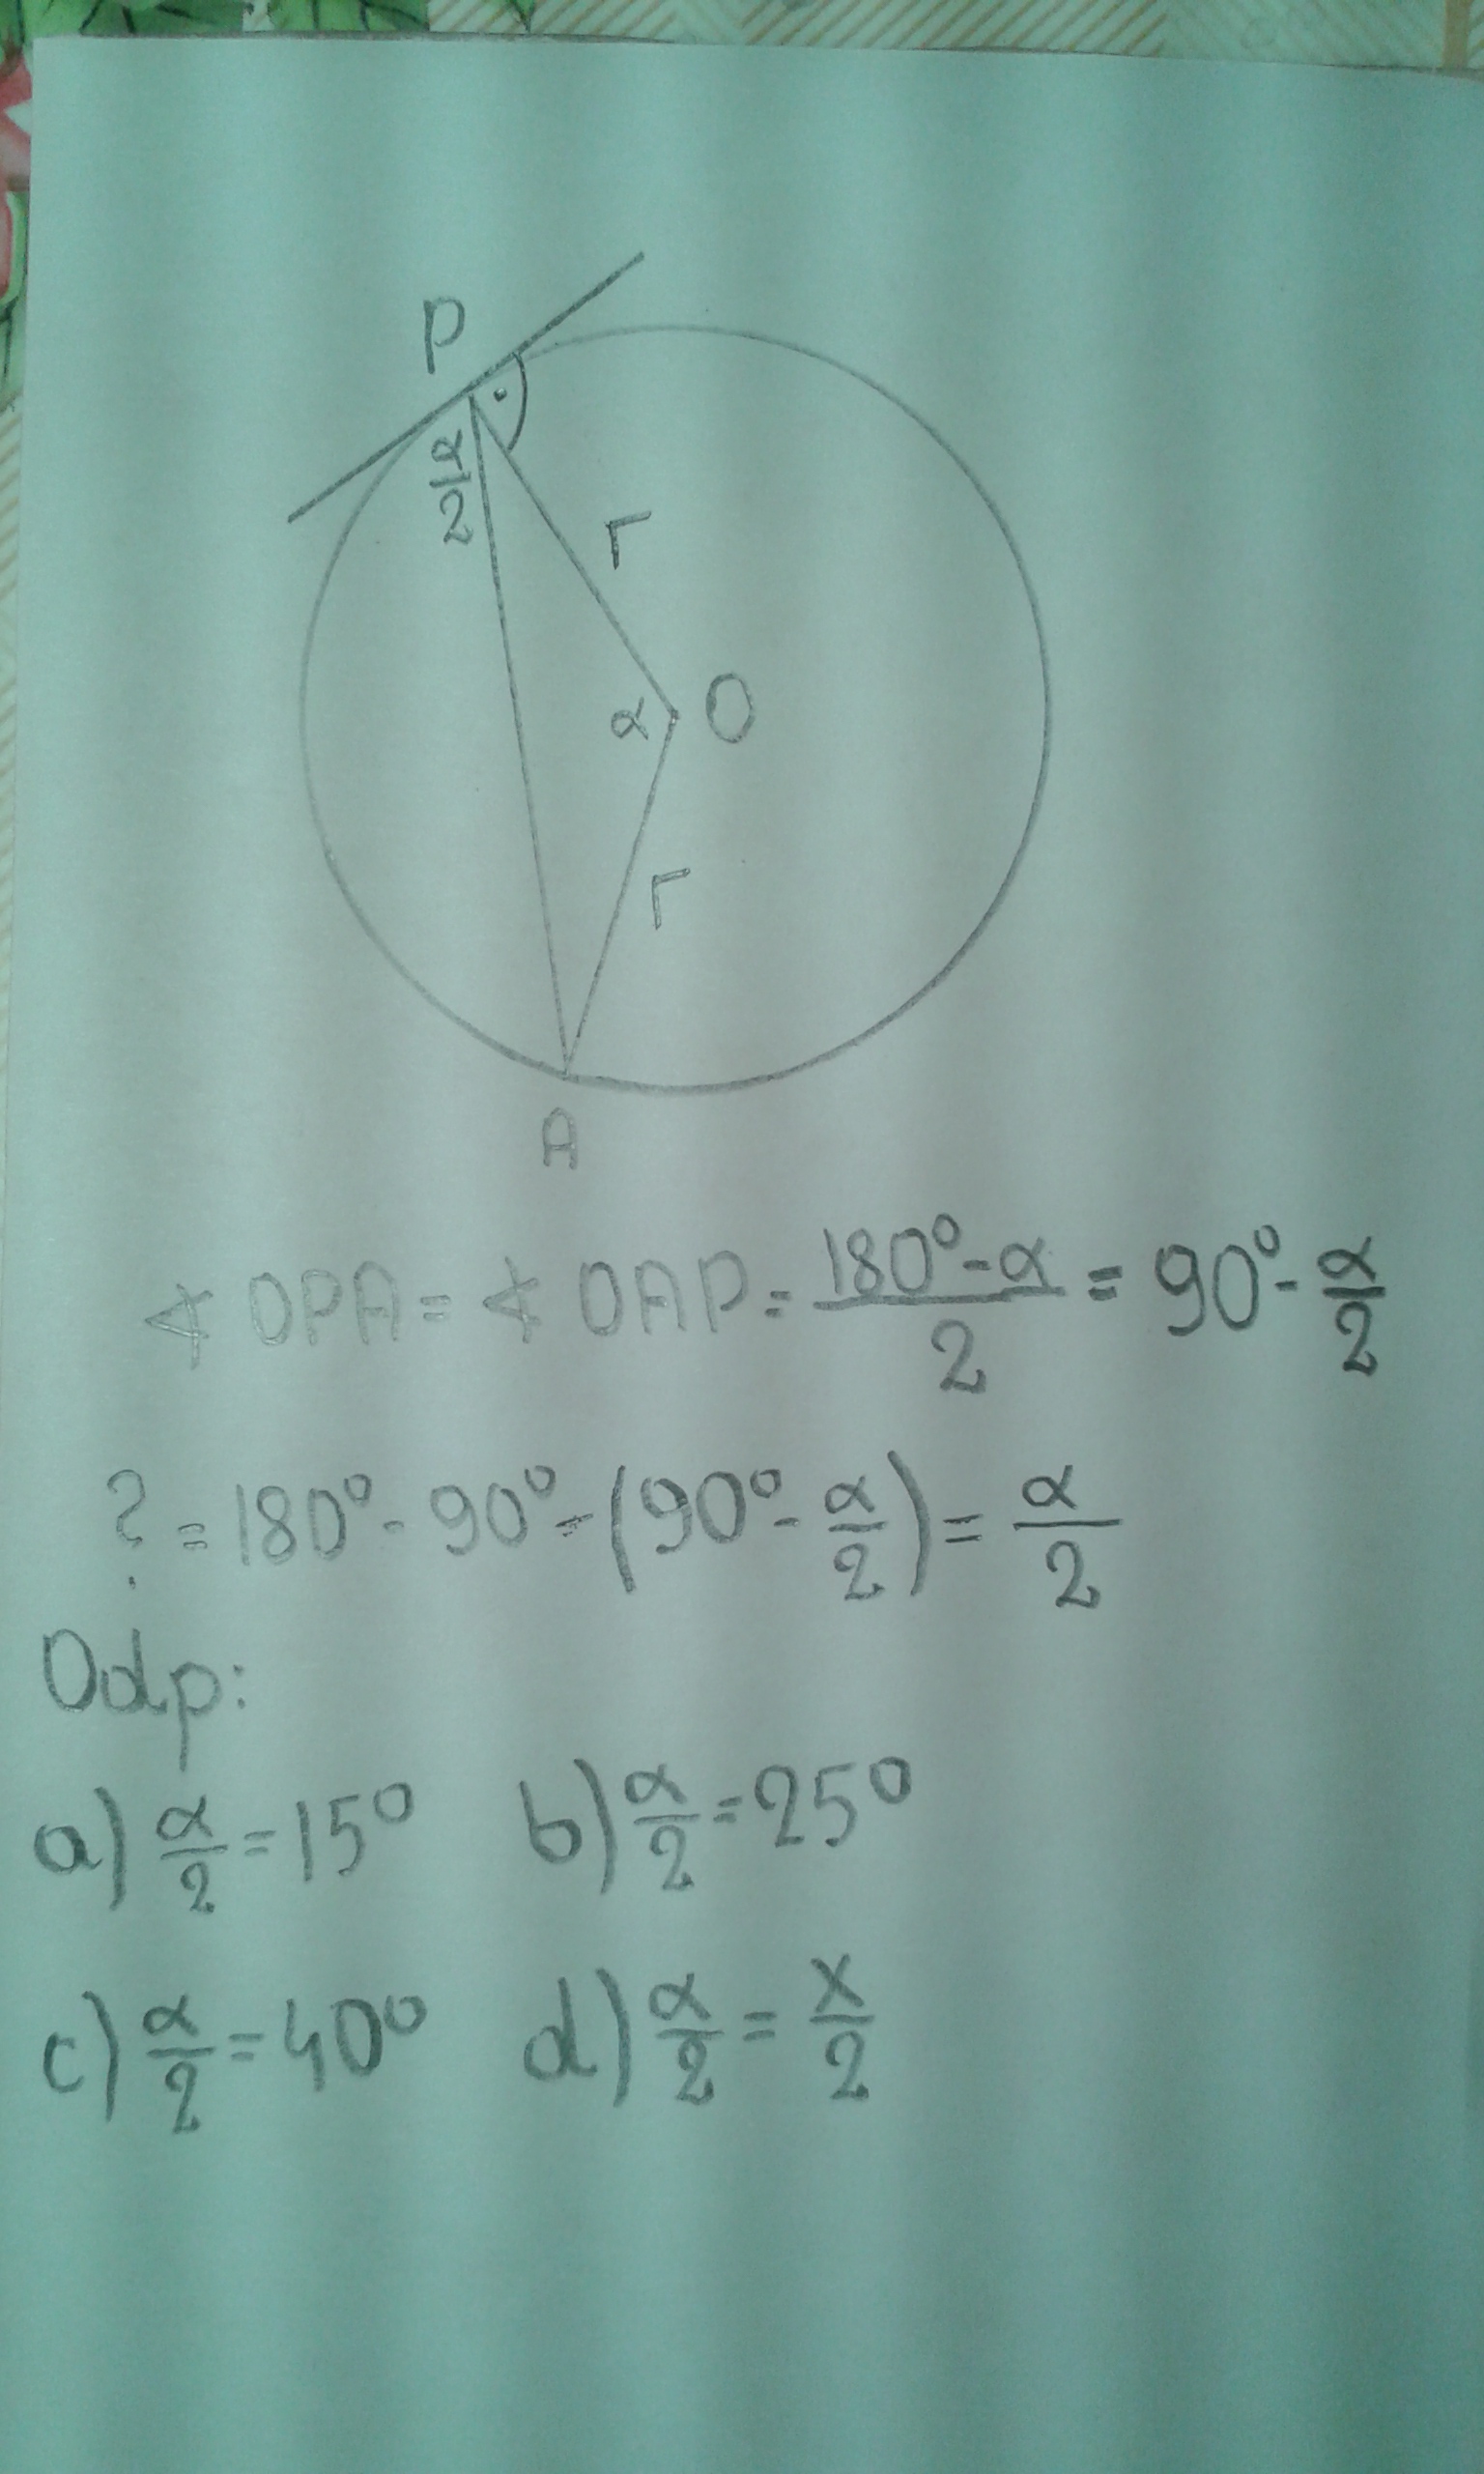 P
α/2
r
α O
r
A
∢ OPA = ∢ OAP = (180° - α)/2 = 90° - α/2
? = 180° - 90° - (90° - α/2) = α/2
Odp:
a) α/2 = 15° b) α/2 = 25°
c) α/2 = 40° d) α/2 = x/2